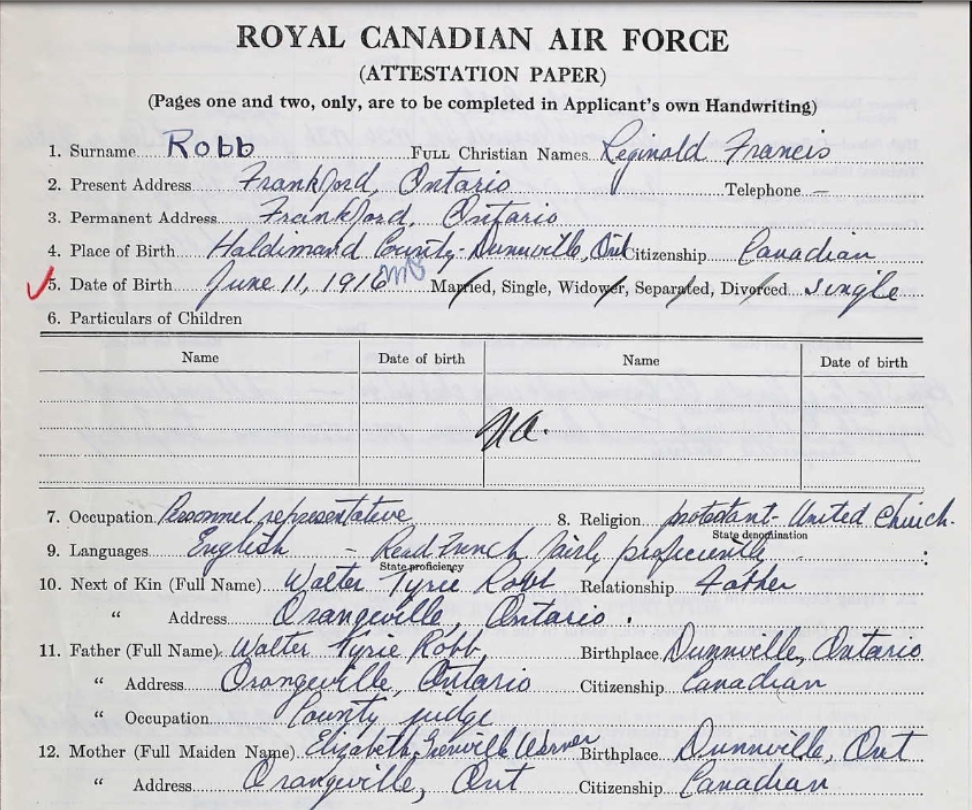 ROYAL CANADIAN AIR FORCE
(ATTESTATION PAPER)
(Pages one and two, only, are to be completed in Applicant's own Handwriting)
1. Surname Robb FULL Christian Names Reginald Francis
2. Present Address Frankford, Ontario Telephone —
3. Permanent Address Frankford, Ontario
4. Place of Birth Haldimand County - Dunnville, Ont Citizenship Canadian
5. Date of Birth June 11, 1916 Married, Single, Widower, Separated, Divorced single
6. Particulars of Children
Name Date of birth Name Date of birth
N.A.
7. Occupation Personnel representative 8. Religion protestant - United Church.
State denomination
9. Languages English - Read French fairly proficiently
State proficiency
10. Next of Kin (Full Name) Walter Tyrie Robb Relationship Father
" Address Orangeville, Ontario.
11. Father (Full Name) Walter Tyrie Robb, Birthplace Dunnville, Ontario
" Address Orangeville, Ontario Citizenship Canadian
" Occupation County judge
12. Mother (Full Maiden Name) Elizabeth Warner Birthplace Dunnville, Ont
" Address Orangeville, Ont Citizenship Canadian